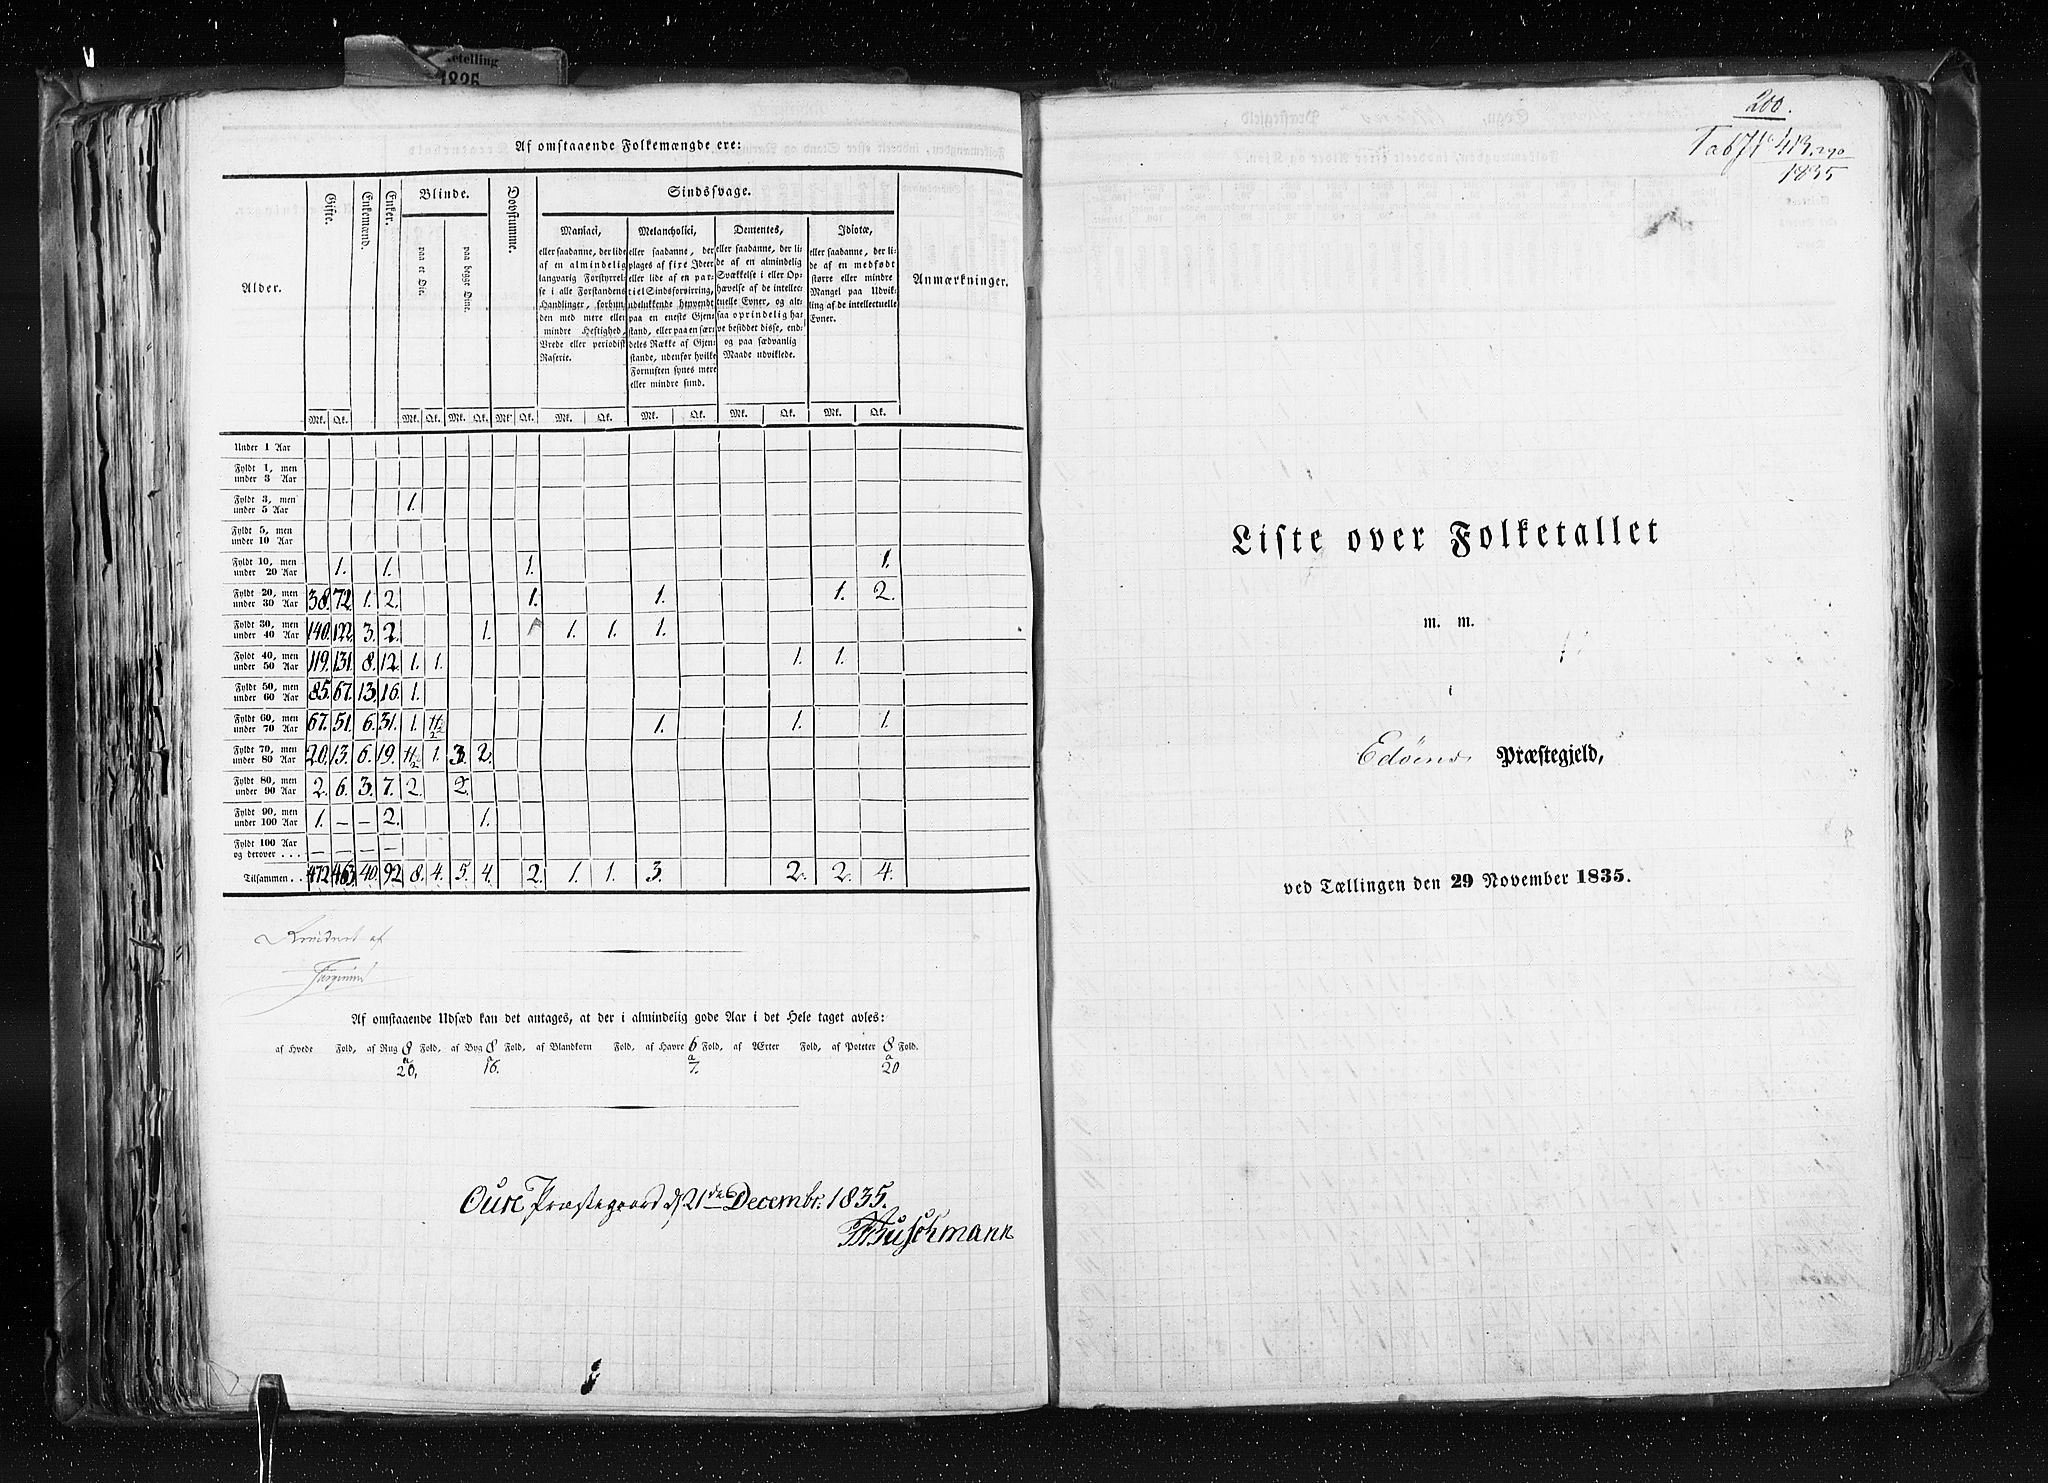 ketelling
1835
Af omstaaende Folkemængde ere:
Alder. Gifte. Enkemænd. Enker. Blinde. Døvstumme. Sindssvage. Anmærkninger.
paa et Øie. paa begge Øine.
Maniaci,
eller saadanne, der lide
af en almindelig
langvarig Forstyrrel-
se i alle Forstandens
Handlinger, forbun-
den med mere eller
mindre Heftighed,
Vrede eller periodisk
Raserie.
Melancholici,
eller saadanne, der
plages af fixe Ideer
eller lide af en par-
tiel Sindsforvirring,
udelukkende henvendt
paa en eneste Gjen-
stand, eller paa en sær-
deles Række af Gjen-
stande, udenfor hvilke
Fornuften synes mere
eller mindre sund.
Dementes,
eller saadanne, der li-
de af en almindelig
Svækkelse i eller Op-
hævelse af de intellec-
tuelle Evner, og alt-
saa oprindelig ha-
ve besiddet disse, end-
og paa sædvanlig
Maade udviklede.
Idiotæ,
eller saadanne, der li-
de af en medfødt
større eller mindre
Mangel paa Udvik-
ling af de intellectuelle
Evner.
Mk. Qk. Mk. Qk. Mk. Qk. Mk. Qk. Mk. Qk. Mk. Qk. Mk. Qk. Mk. Qk.
Under 1 Aar
Fyldt 1, men
under 3 Aar
Fyldt 3, men
under 5 Aar 1.
Fyldt 5, men
under 10 Aar
Fyldt 10, men
under 20 Aar 1. 1. 1. 1.
Fyldt 20, men
under 30 Aar 38. 72. 1. 2. 1. 1. 1. 2.
Fyldt 30, men
under 40 Aar 140. 122. 3. 2. 1. 1. 1. 1.
Fyldt 40, men
under 50 Aar 119. 131. 8. 12. 1. 1. 1. 1.
Fyldt 50, men
under 60 Aar 85. 67. 13. 16. 1.
Fyldt 60, men
under 70 Aar 67. 51. 6. 31. 1. 2 1. 1. 1.
Fyldt 70, men
under 80 Aar 20. 13. 6. 19. 2 1. 3. 2.
Fyldt 80, men
under 90 Aar 2. 6. 3. 7. 2. 2.
Fyldt 90, men
under 100 Aar 1. — — 2. 1.
Fyldt 100 Aar
og derover . . . — — — —
Tilsammen . . 472 463 40. 92 8. 4. 5. 4. 2. 1. 1. 3. 2. 2. 4.
Af omstaaende Udsæd kan det antages, at der i almindelig gode Aar i det Hele taget avles:
af Hvede Fold, af Rug 8 Fold, af Byg 8 Fold, af Blandkorn Fold, af Havre 6 Fold, af Ærter Fold, af Poteter 8 Fold.
a a a a
20, 16. 7. 20
Oure Præstegaard d 21de Decembr. 1835.
Buschmann
200.
1835
Liste over Folketallet
m. m.
i
Edøens Præstegjeld,
ved Tællingen den 29 November 1835.